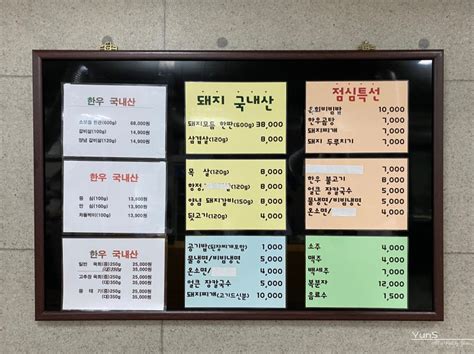 한우 국내산
소모듬 한판(600g) 68,000원
갈비살(100g) 14,900원
양념 갈비살(120g) 14,900원
한우 국내산
등 심(100g) 13,900원
안 심(100g) 13,900원
차돌박이(100g) 13,900원
한우 국내산
일반 육회(중)250g 25,000원
(대)350g 35,000원
고추장 육회(중)250g 25,000원
(대)350g 35,000원
육 태 기 (중)250g 25,000원
(대)350g 35,000원
돼지 국내산
돼지모듬 한판(600g) 38,000
삼겹살(120g) 8,000
목 살(120g) 8,000
항정, (120g) 8,000
양념 돼지갈비(120g) 8,000
뒷고기(120g) 4,000
공기밥(된장찌개포함) 1,000
물냉면/비빔냉면 5,000
온소면/ 4,000
얼큰 장칼국수 5,000
돼지찌개(고기드신분) 10,000
점심특선
육회비빔밥 10,000
한우곰탕 7,000
돼지찌개 7,000
돼지 두루치기 7,000
한우 불고기 8,000
얼큰 장칼국수 5,000
물냉면/비빔냉면 5,000
온소면/ 4,000
소주 4,000
맥주 4,000
백세주 7,000
복분자 12,000
음료수 1,500
YunS